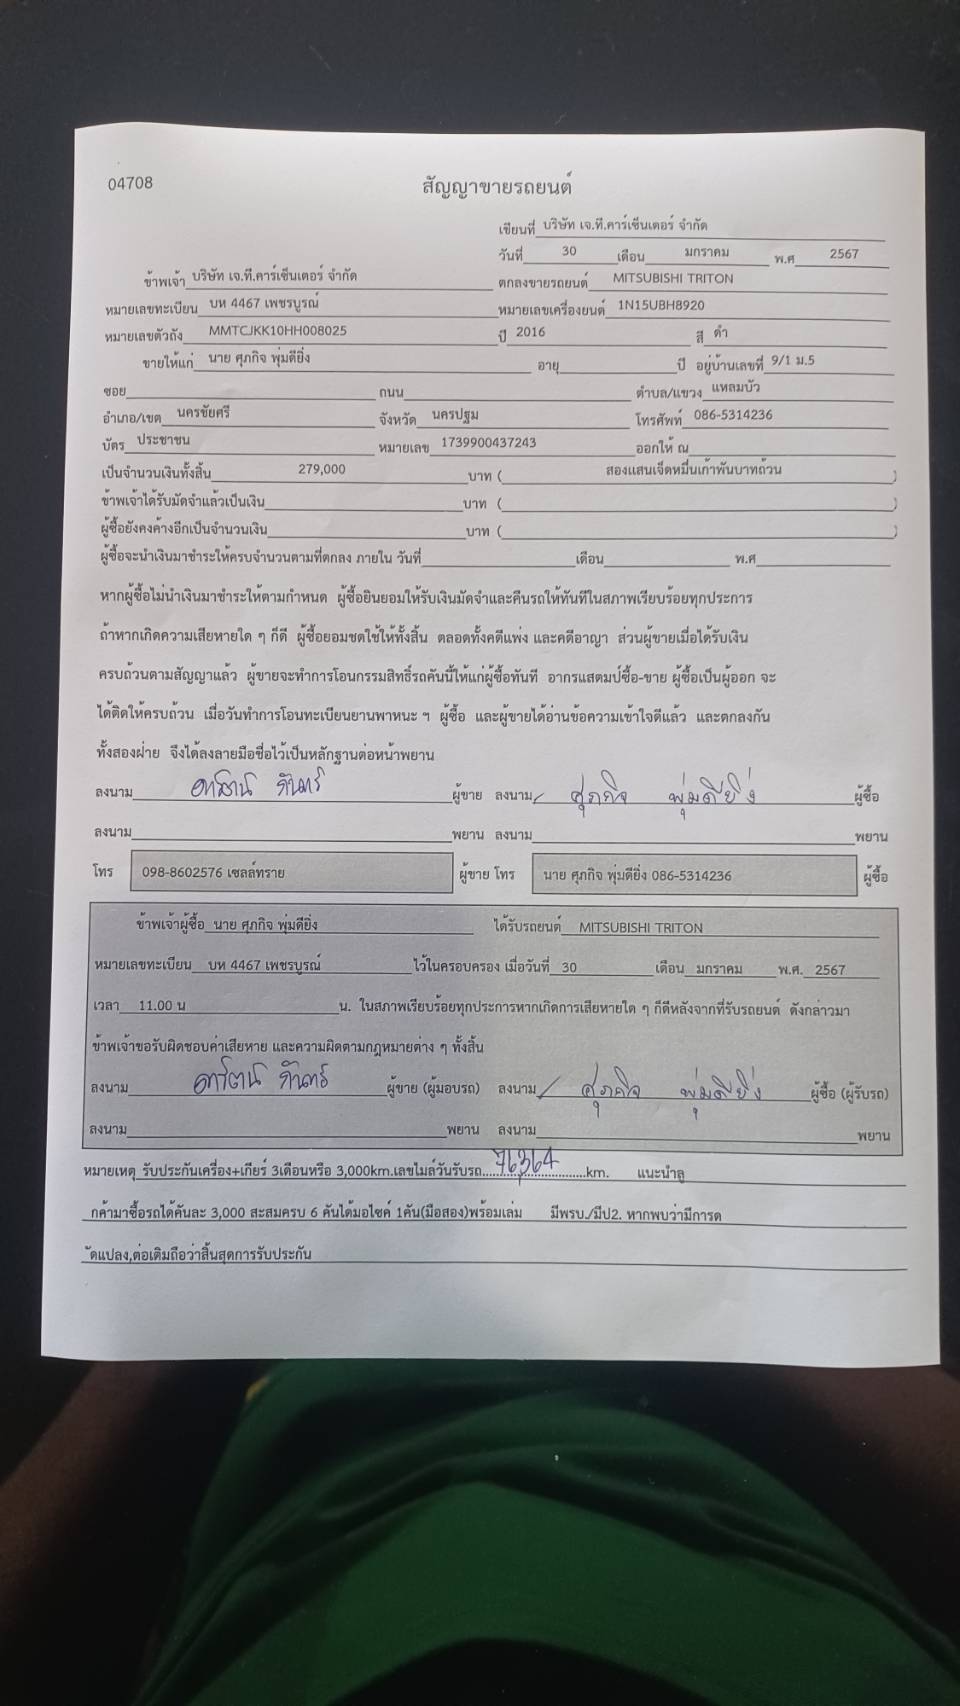 04708
สัญญาขายรถยนต์
เขียนที่ บริษัท เจ.ที.คาร์เซ็นเตอร์ จำกัด
วันที่ 30 เดือน มกราคม พ.ศ 2567
ข้าพเจ้า บริษัท เจ.ที.คาร์เซ็นเตอร์ จำกัด ตกลงขายรถยนต์ MITSUBISHI TRITON
หมายเลขทะเบียน บห 4467 เพชรบูรณ์ หมายเลขเครื่องยนต์ 1N15UBH8920
หมายเลขตัวถัง MMTCJKK10HH008025 ปี 2016 สี ดำ
ขายให้แก่ นาย ศุภกิจ พุ่มดียิ่ง อายุ ปี อยู่บ้านเลขที่ 9/1 ม.5
ซอย ถนน ตำบล/แขวง แหลมบัว
อำเภอ/เขต นครชัยศรี จังหวัด นครปฐม โทรศัพท์ 086-5314236
บัตร ประชาชน หมายเลข 1739900437243 ออกให้ ณ
เป็นจำนวนเงินทั้งสิ้น 279,000 บาท ( สองแสนเจ็ดหมื่นเก้าพันบาทถ้วน )
ข้าพเจ้าได้รับมัดจำแล้วเป็นเงิน บาท ( )
ผู้ซื้อยังคงค้างอีกเป็นจำนวนเงิน บาท ( )
ผู้ซื้อจะนำเงินมาชำระให้ครบจำนวนตามที่ตกลง ภายใน วันที่ เดือน พ.ศ
หากผู้ซื้อไม่นำเงินมาชำระให้ตามกำหนด ผู้ซื้อยินยอมให้รับเงินมัดจำและคืนรถให้ทันทีในสภาพเรียบร้อยทุกประการ
ถ้าหากเกิดความเสียหายใด ๆ ก็ดี ผู้ซื้อยอมชดใช้ให้ทั้งสิ้น ตลอดทั้งคดีแพ่ง และคดีอาญา ส่วนผู้ขายเมื่อได้รับเงิน
ครบถ้วนตามสัญญาแล้ว ผู้ขายจะทำการโอนกรรมสิทธิ์รถคันนี้ให้แก่ผู้ซื้อทันที อากรแสตมป์ซื้อ-ขาย ผู้ซื้อเป็นผู้ออก จะ
ได้ติดให้ครบถ้วน เมื่อวันทำการโอนทะเบียนยานพาหนะ ฯ ผู้ซื้อ และผู้ขายได้อ่านข้อความเข้าใจดีแล้ว และตกลงกัน
ทั้งสองฝ่าย จึงได้ลงลายมือชื่อไว้เป็นหลักฐานต่อหน้าพยาน
ลงนาม ผู้ขาย ลงนาม ศุภกิจ พุ่มดียิ่ง ผู้ซื้อ
ลงนาม พยาน ลงนาม พยาน
โทร 098-8602576 เซลล์ทราย ผู้ขาย โทร นาย ศุภกิจ พุ่มดียิ่ง 086-5314236 ผู้ซื้อ
ข้าพเจ้าผู้ซื้อ นาย ศุภกิจ พุ่มดียิ่ง ได้รับรถยนต์ MITSUBISHI TRITON
หมายเลขทะเบียน บห 4467 เพชรบูรณ์ ไว้ในครอบครอง เมื่อวันที่ 30 เดือน มกราคม พ.ศ. 2567
เวลา 11.00 น น. ในสภาพเรียบร้อยทุกประการหากเกิดการเสียหายใด ๆ ก็ดีหลังจากที่รับรถยนต์ ดังกล่าวมา
ข้าพเจ้าขอรับผิดชอบค่าเสียหาย และความผิดตามกฎหมายต่าง ๆ ทั้งสิ้น
ลงนาม ผู้ขาย (ผู้มอบรถ) ลงนาม ศุภกิจ พุ่มดียิ่ง ผู้ซื้อ (ผู้รับรถ)
ลงนาม พยาน ลงนาม พยาน
หมายเหตุ รับประกันเครื่อง+เกียร์ 3เดือนหรือ 3,000km.เลขไมล์วันรับรถ 76364 km. แนะนำลู
กค้ามาซื้อรถได้คันละ 3,000 สะสมครบ 6 คันได้มอไซค์ 1คัน(มือสอง)พร้อมเล่ม มีพรบ./มีป2. หากพบว่ามีการด
ัดแปลง,ต่อเติมถือว่าสิ้นสุดการรับประกัน